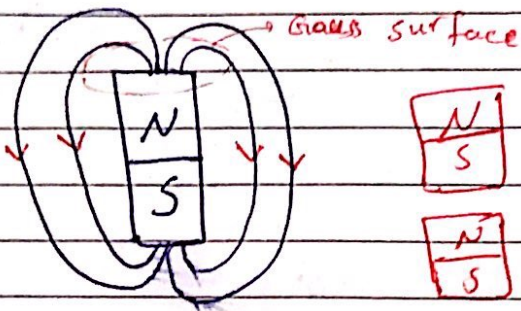 Gauss surface
N
S
N
S
N
S